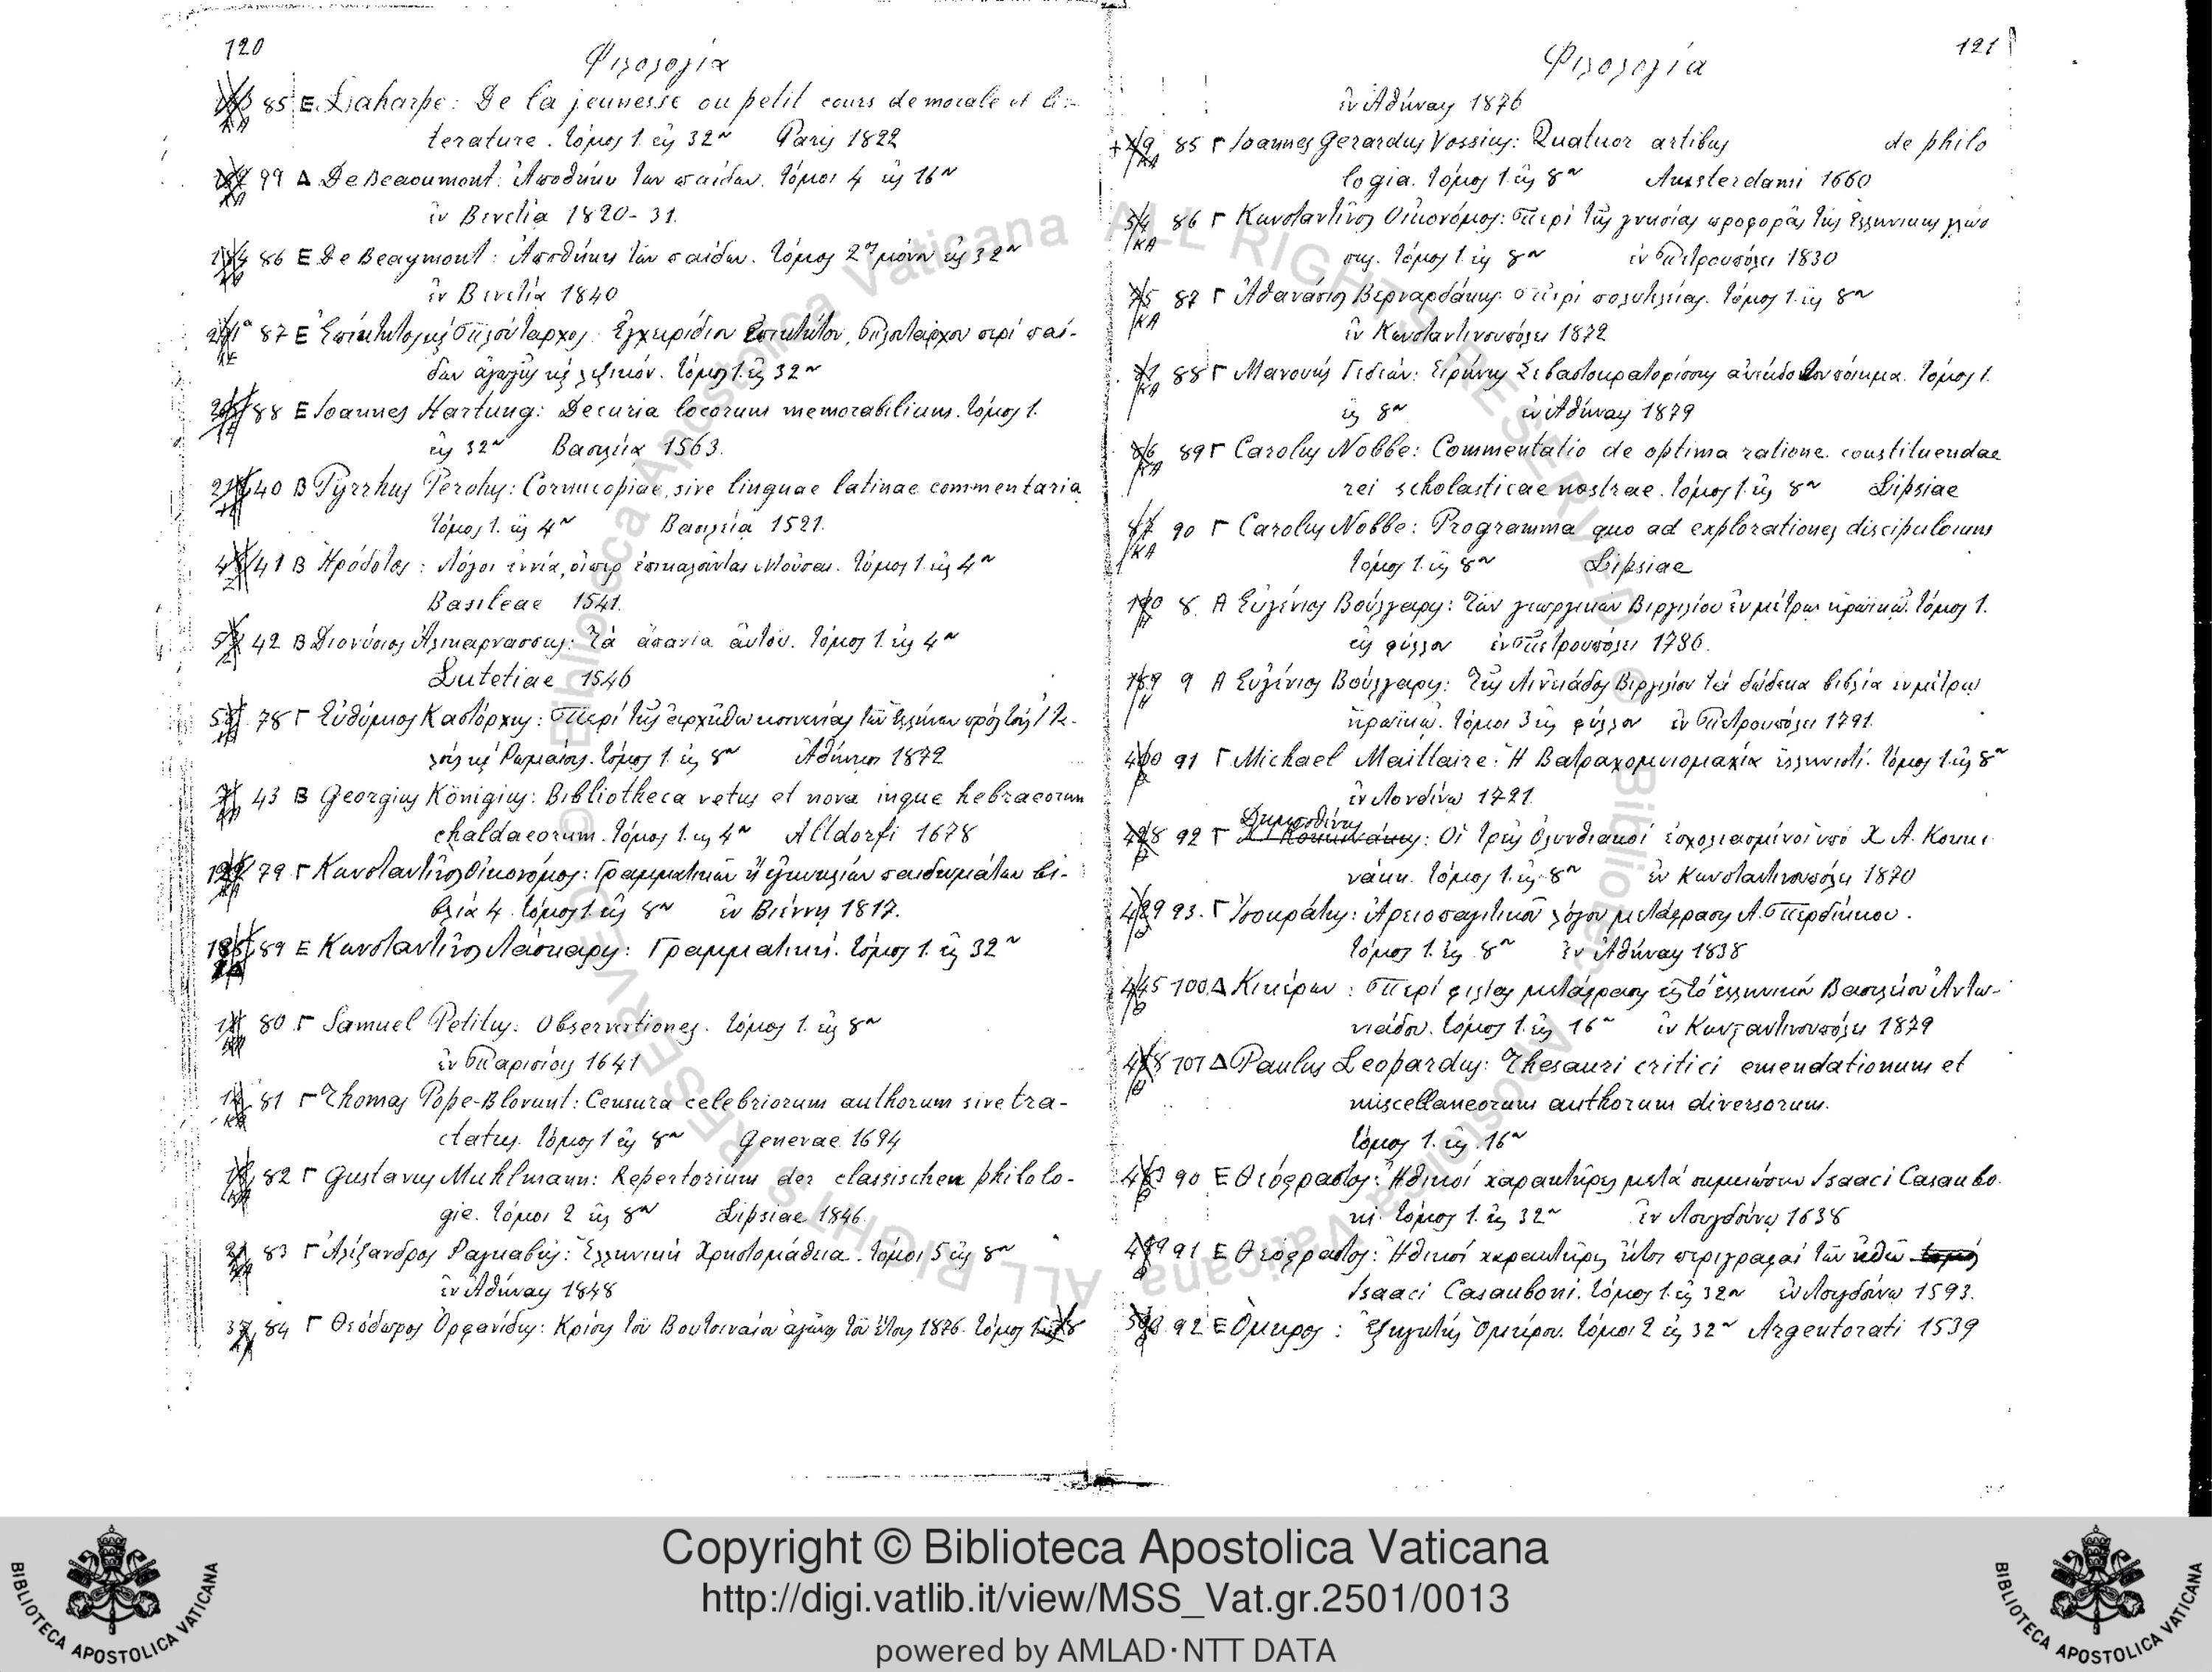 120
Φιλολογία
85 Ε Laharpe: De la jeunesse ou petit cours de morale et li-
terature. τόμος 1. εἰς 32ον Paris 1822
99 Δ De Beaoumont: Ἀποθήκη τῶν παίδων. τόμοι 4 εἰς 16ον
ἐν Βενετίᾳ 1820-31.
86 Ε De Beaymont: Ἀποθήκη τῶν παίδων. τόμος 2ος μόνον εἰς 32ον
ἐν Βενετίᾳ 1840
87 Ε Ἐπίκτητος καὶ Πλούταρχος: Ἐγχειρίδιον Ἐπικτήτου, Πλουτάρχου περὶ παί-
δων ἀγωγῆς καὶ λεξικόν. τόμος 1. εἰς 32ον
88 Ε Ioannes Hartung: Decuria locorum memorabilium. τόμος 1.
εἰς 32ον Βασιλεία 1563.
40 Β Pyrrhus Perohus: Cornucopiae, sive linguae latinae commentaria
τόμος 1. εἰς 4ον Βασιλεία 1521.
41 Β Ἡρόδοτος: Λόγοι ἐννέα, οἵπερ ἐπικαλοῦνται Μοῦσαι. τόμος 1. εἰς 4ον
Basileae 1541.
42 Β Διονύσιος Ἁλικαρνασσεύς: Τὰ ἅπαντα αὐτοῦ. τόμος 1. εἰς 4ον
Lutetiae 1546
78 Γ Εὐθύμιος Καστόρχης: Περὶ τῆς ἀρχῆθεν κοινωνίας τῶν Ἑλλήνων πρὸς τοὺς Ἰτα-
λοὺς καὶ Ρωμαίους. τόμος 1. εἰς 8ον Ἀθήνησι 1872
43 Β Georgius Königius: Bibliotheca vetus et nova inque hebraeorum
chaldaeorum. τόμος 1. εἰς 4ον Altdorfi 1678
79 Γ Κωνσταντῖνος Οἰκονόμος: Γραμματικῶν ἢ ἐγκυκλίων παιδευμάτων βι-
βλία 4. τόμος 1. εἰς 8ον ἐν Βιέννῃ 1817.
89 Ε Κωνσταντῖνος Λάσκαρης: Γραμματική. τόμος 1. εἰς 32ον
80 Γ Samuel Petitus: Observationes. τόμος 1. εἰς 8ον
ἐν Παρισίοις 1641
81 Γ Thomas Pope-Blorunt: Censura celebriorum authorum sive tra-
ctatus. τόμος 1 εἰς 8ον Generae 1694
82 Γ Gustavus Muhlmann: Repertorium der classischen philolo-
gie. τόμοι 2 εἰς 8ον Lipsiae 1846.
83 Γ Ἀλέξανδρος Ραγκαβῆς: Ἑλληνικὴ Χρηστομάθεια. τόμοι 5 εἰς 8ον
ἐν Ἀθήναις 1848
84 Γ Θεόδωρος Ὀρφανίδης: Κρίσις τοῦ Βουτσιναίου ἀγῶνος τοῦ ἔτους 1876. τόμος 1. εἰς 8
121
Φιλολογία
ἐν Ἀθήναις 1876
85 Γ Ioannes Gerardus Vossius: Quatuor artibus de philo
logia. τόμος 1. εἰς 8ον Amsterdami 1660
86 Γ Κωνσταντῖνος Οἰκονόμος: Περὶ τῆς γνησίας προφορᾶς τῆς ἑλληνικῆς γλώσ
σης. τόμος 1. εἰς 8ον ἐν Πετρουπόλει 1830
87 Γ Ἀθανάσιος Βερναρδάκης: Περὶ πολυτελείας. τόμος 1. εἰς 8ον
ἐν Κωνσταντινουπόλει 1872
88 Γ Μανουὴλ Γεδεών: Εἰρήνης Σεβαστοκρατορίσσης ἀνέκδοτον ποίημα. τόμος 1.
εἰς 8ον ἐν Ἀθήναις 1879
89 Γ Carolus Nobbe: Commentatio de optima ratione constituendae
rei scholasticae nostrae. τόμος 1. εἰς 8ον Lipsiae
90 Γ Carolus Nobbe: Programma quo ad explorationes discipulorum
τόμος 1. εἰς 8ον Lipsiae
8. Α Εὐγένιος Βούλγαρης: Τῶν γεωργικῶν Βιργιλίου ἐν μέτρῳ ἡρωϊκῷ. τόμος 1.
εἰς φύλλον ἐν Πετρουπόλει 1786.
9 Α Εὐγένιος Βούλγαρης: Τῆς Αἰνειάδος Βιργιλίου τὰ δώδεκα βιβλία ἐν μέτρῳ
ἡρωϊκῷ. τόμοι 3 εἰς φύλλον ἐν Πετρουπόλει 1791.
91 Γ Michael Maittaire: Ἡ Βατραχομυομαχία ἑλληνιστί. τόμος 1. εἰς 8ον
ἐν Λονδίνῳ 1721.
Δημοσθένης
92 Γ : Οἱ τρεῖς Ὀλυνθιακοί ἐσχολιασμένοι ὑπὸ Χ. Α. Κοκκι
νάκη. τόμος 1. εἰς 8ον ἐν Κωνσταντινουπόλει 1870
93. Γ Ἰσοκράτης: Ἀρεοπαγιτικοῦ λόγου μετάφρασις Α. Περδίκκου.
τόμος 1. εἰς 8ον ἐν Ἀθήναις 1838
100 Δ Κικέρων: Περὶ φιλίας μετάφρασις εἰς τὸ ἑλληνικὸν Βασιλείου Ἀντω-
νιάδου. τόμος 1. εἰς 16ον ἐν Κωνσταντινουπόλει 1879
101 Δ Paulus Leopardus: Thesauri critici emendationum et
miscellaneorum authorum diversorum.
τόμος 1. εἰς 16ον
90 Ε Θεόφραστος: Ἠθικοί χαρακτῆρες μετὰ σημειώσεων Isaaci Casaubo
ni. τόμος 1. εἰς 32ον ἐν Λουγδούνῳ 1638
91 Ε Θεόφραστος: Ἠθικοί χαρακτῆρες ἤτοι περιγραφαί τῶν ἠθῶν
Isaaci Casauboni. τόμος 1. εἰς 32ον ἐν Λουγδούνῳ 1593.
92 Ε Ὅμηρος: Ἐξηγητής Ὁμήρου. τόμοι 2 εἰς 32ον Argentorati 1539
Copyright © Biblioteca Apostolica Vaticana
http://digi.vatlib.it/view/MSS_Vat.gr.2501/0013
powered by AMLAD·NTT DATA
BIBLIOTECA APOSTOLICA VATICANA
BIBLIOTECA APOSTOLICA VATICANA